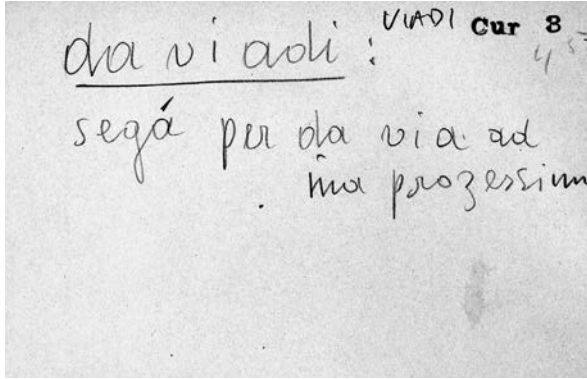 da viadi : VIADI Cur 8
segá per da via ad
ina prozessiun